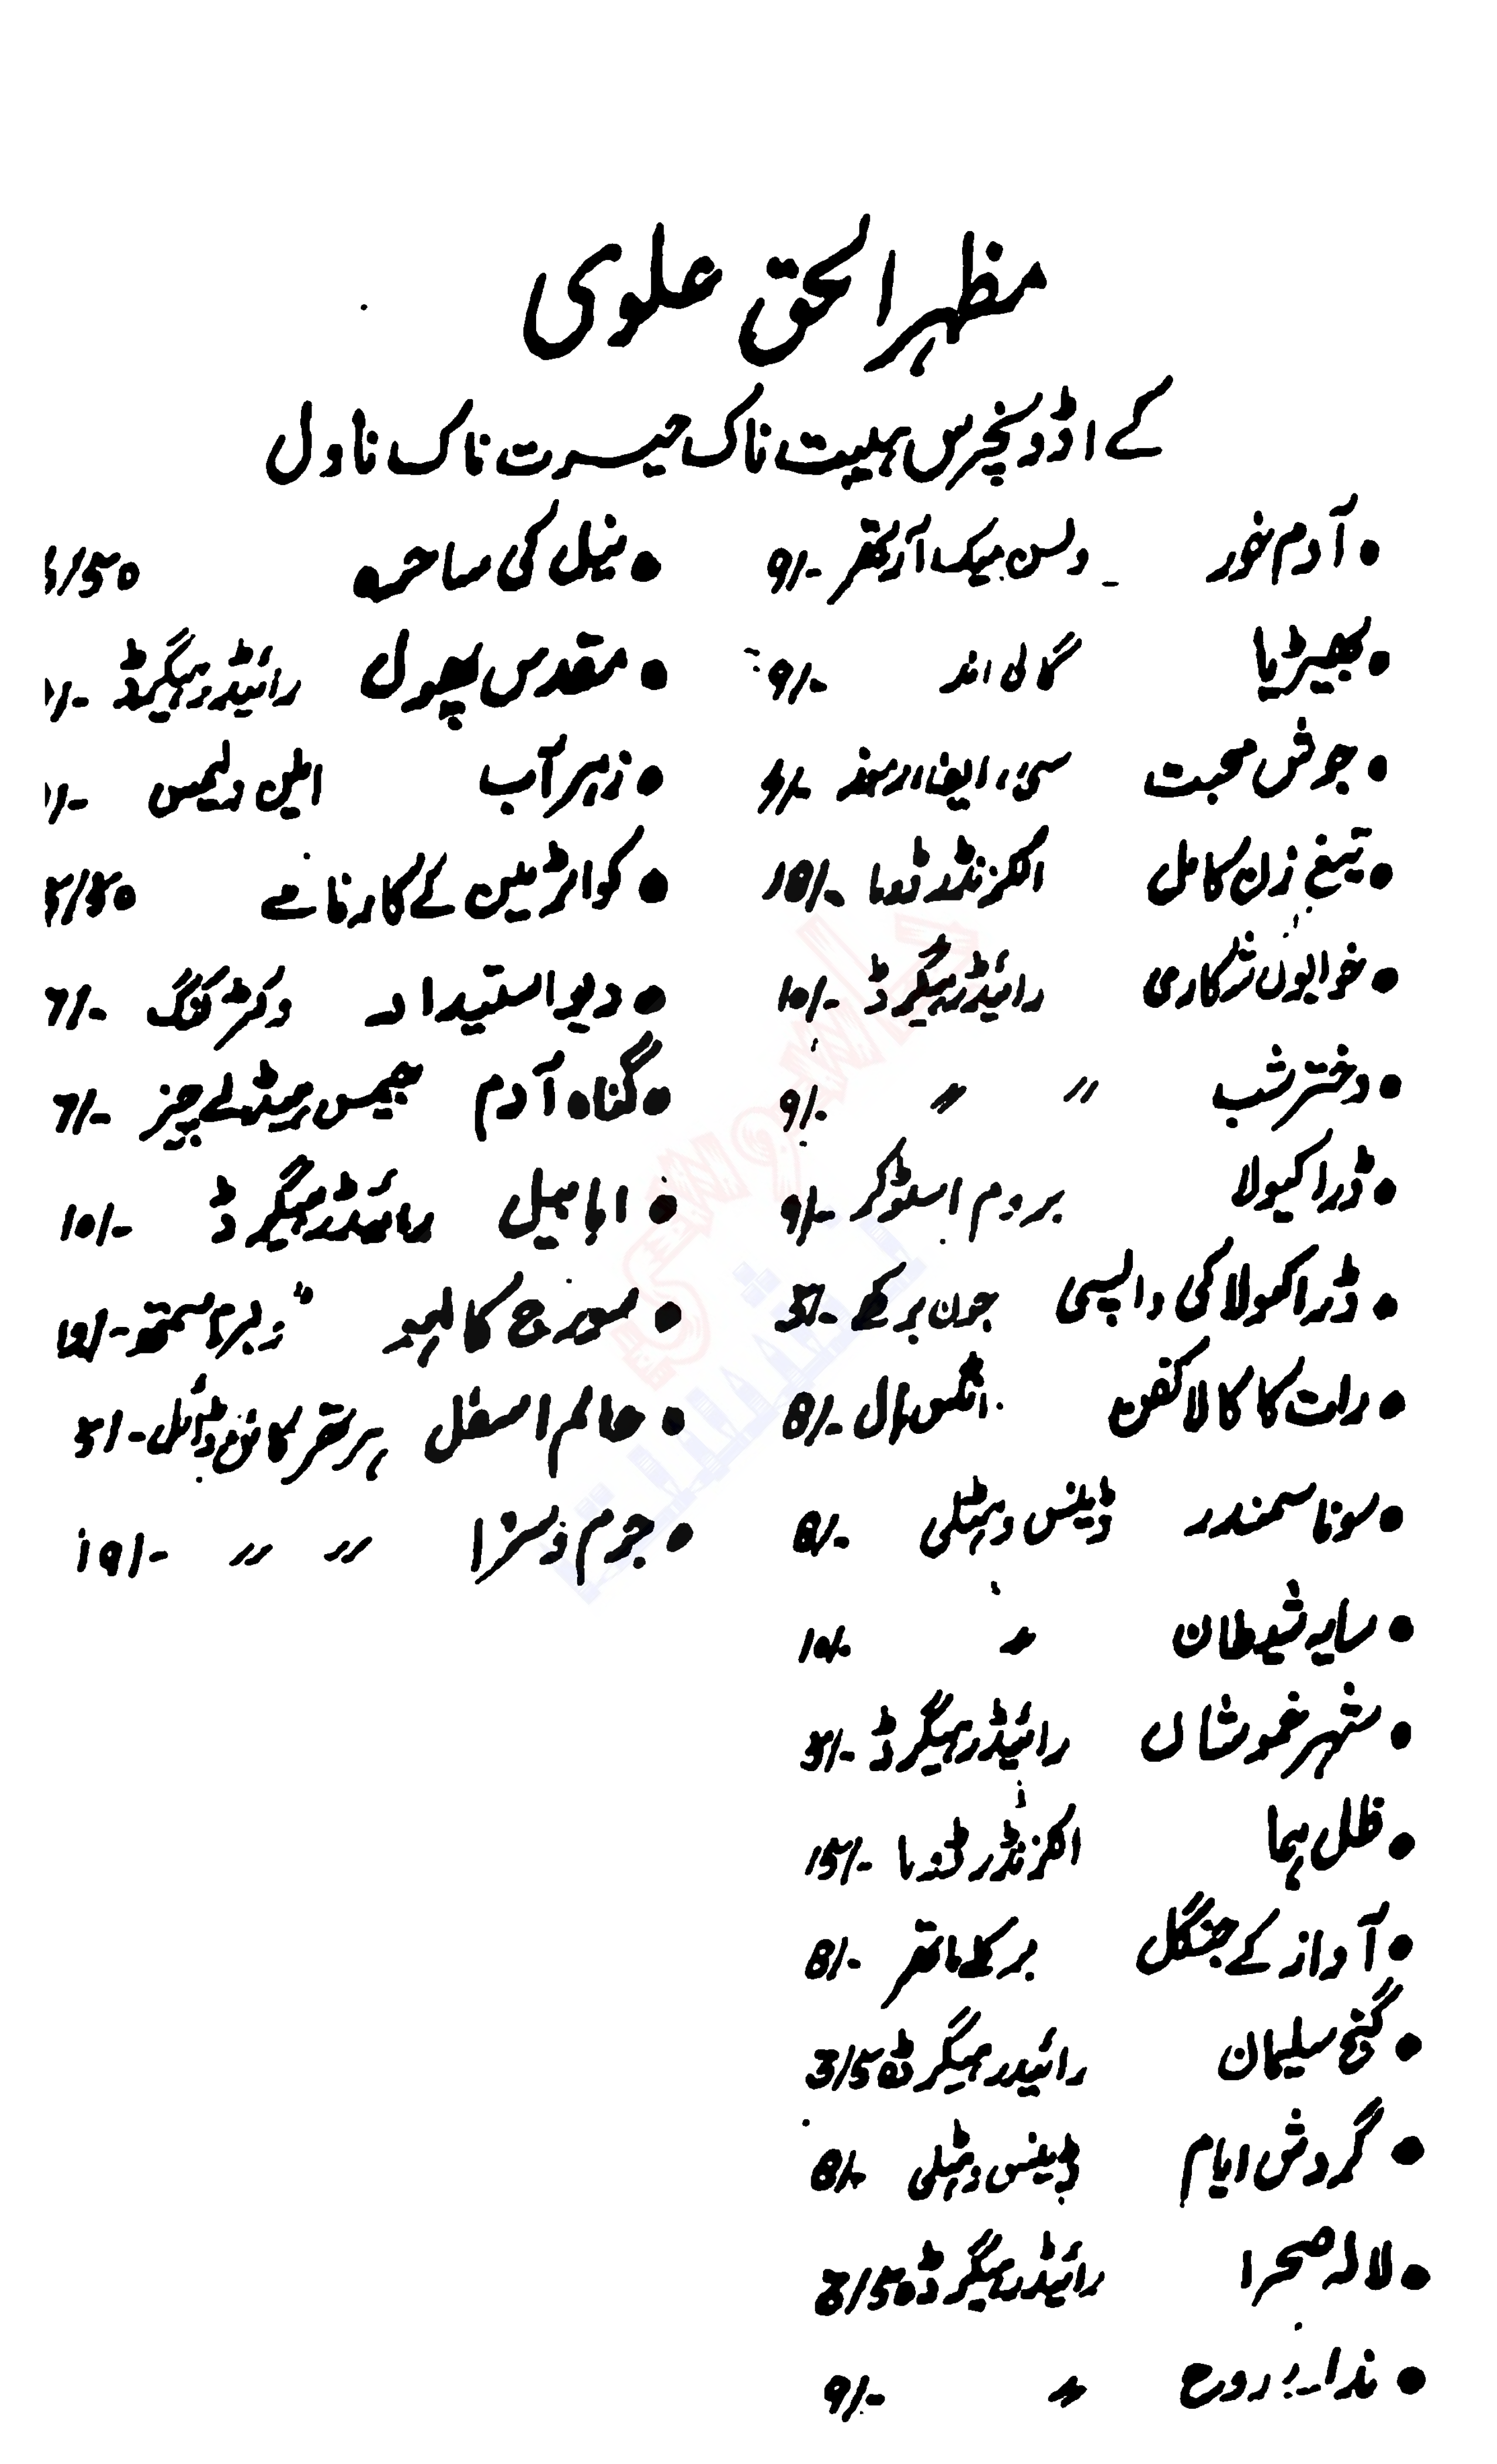 مظہر الحق علوی
کے اڈونچرس ہیبت ناک حیرت ناک ناول
• آدم خور ولسن میک آرتھر 9/-
• بھیڑیا گائی انڈ 9/-
• جوش محبت
• تیغ زن کامل الکزنڈر ڈوما 18/-
• خوابوں شکاری رائیڈر ہیگرڈ 10/-
• دختر شب // // 9/-
• ڈراکیولا بروم اسٹوکر 9/-
• ڈراکیولا کی واپسی جون برکے
• رات کا کالا کفن انگس ہال 8/-
• سونا سمندر ڈینس وہیٹلی 8/-
• سایہ شیطان // 10/-
• شہر خموشاں رائیڈر ہیگرڈ 5/-
• ظل ہما الکزنڈر ڈوما 15/-
• آواز کے جنگل 8/-
• گنج سلیمان رائیڈر ہیگرڈ 3/50
• گردش ایام ڈینس وہیٹلی 8/-
• لالہ صحرا رائیڈر ہیگرڈ 8/50
• ندائے روح // 9/-
• نیل کی ساحرہ /50
• مقدس پھول رائیڈر ہیگرڈ
• زہر آب ایلن ولیمس
• کواٹرمین کے کارنامے /50
• دیو استبداد وکٹر کننگ 7/-
• گناہ آدم جیمس ہیڈلے چیز 7/-
• ابابیل رائیڈر ہیگرڈ 10/-
• سورج کا لہو ولبر اسمتھ
• عالم اسفل سر آرتھر کانن ڈائل 5/-
• جرم و سزا // // 10/-